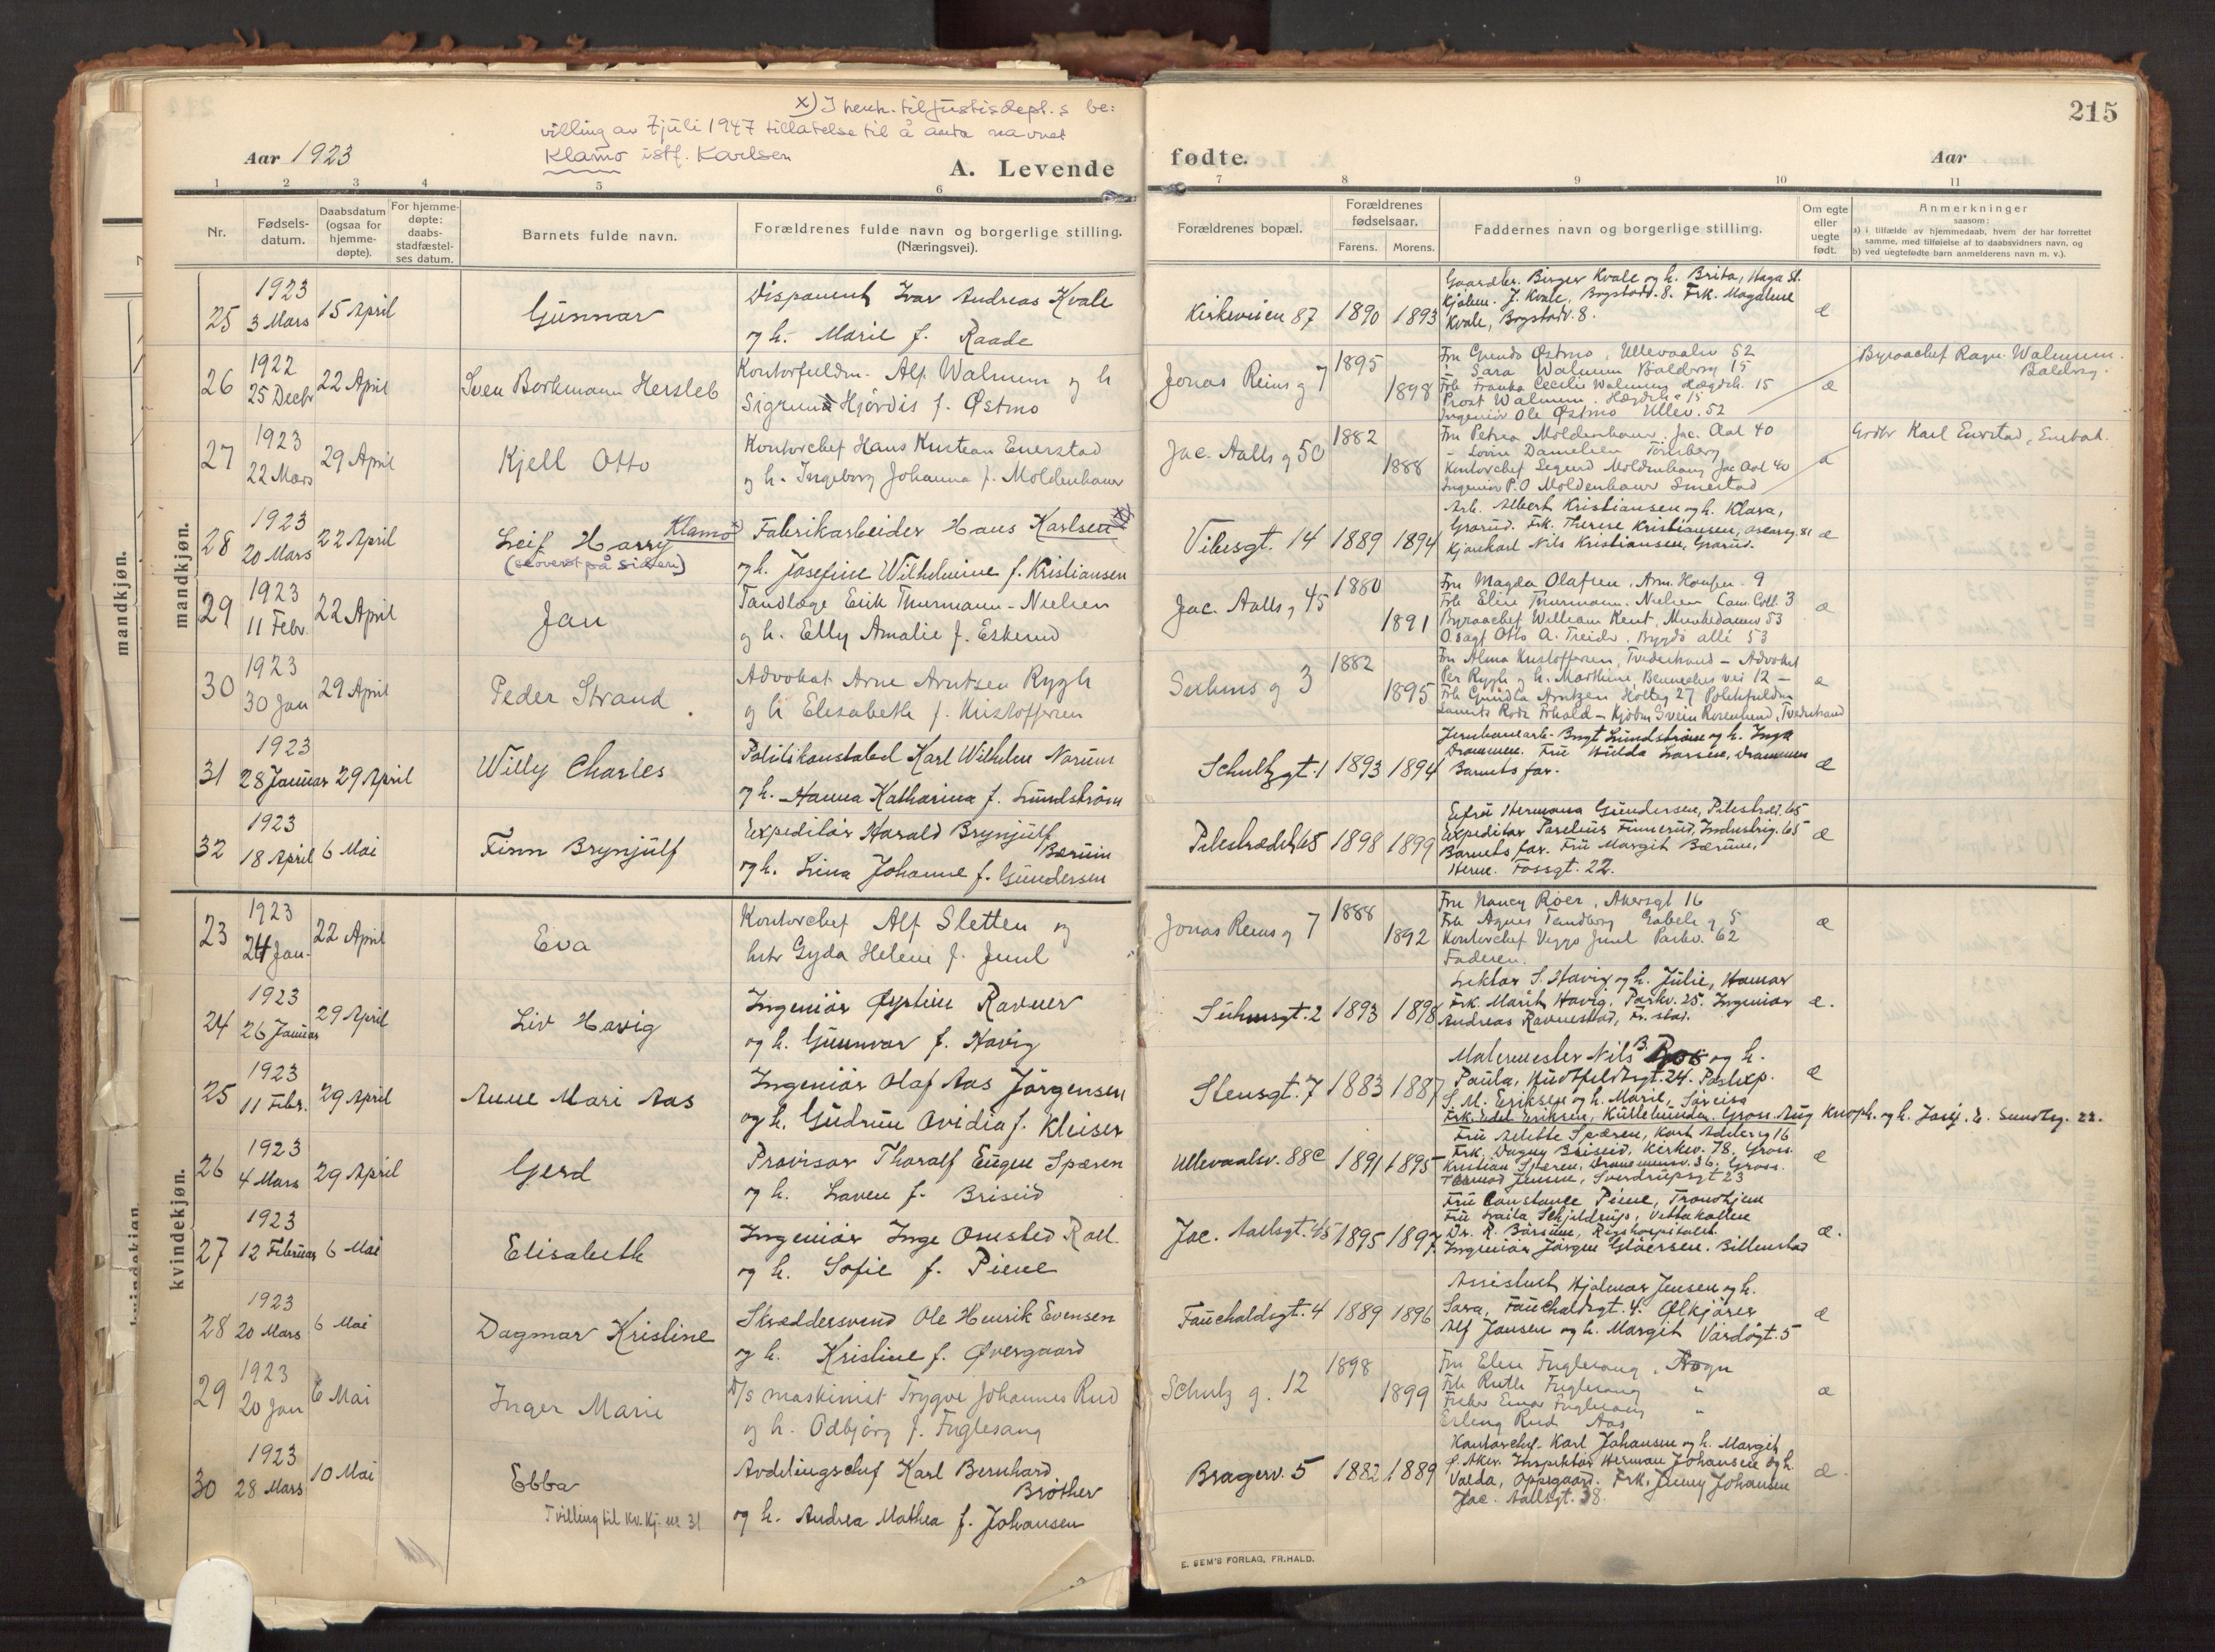 215
x) I henh. til Justisdept.s be:
villing av 7 juli 1947 tillatelse til å anta navnet
Klamo istf. Karlsen
Aar 1923
A. Levende
fødte.
Aar
1 2 3 4 5 6 7 8 9 10 11
Nr.
Fødsels-
datum.
Daabsdatum
(ogsaa for
hjemme-
døpte).
For hjemme-
døpte:
daabs-
stadfæstel-
ses datum.
Barnets fulde navn.
Forældrenes fulde navn og borgerlige stilling.
(Næringsvei).
Forældrenes bopæl.
Forældrenes
fødselsaar.
Farens. Morens.
Faddernes navn og borgerlige stilling.
Om egte
eller
uegte
født.
Anmerkninger
saasom:
a) i tilfælde av hjemmedaab, hvem der har forrettet
samme, med tilføielse af to daabsvidners navn, og
b) ved uegtefødte barn anmelderens navn m. v.).
mandkjøn.
mandkjøn.
25
1923
3 Mars
15 April
Gunnar
Disponent Ivar Andreas Kvale
og h. Marie f. Raade
Kirkeveien 87
1890
1893
Gaardbr. Birger Kvale og h. Brita, Haga St.
Kjøbm. J. Kvale, Bogstadv. 8. Frk. Magdalene
Kvale, Bogstadv. 8.
æ
26
1922
25 Decbr
22 April
Sven Borkmann Hersleb
Kontorfuldm. Alf Walnum og h
Sigrund Hjördis f. Østmo
Jonas Reins g 7
1895
1898
Østmo, Ullevaalv 52
Sara Walnum
Cecilie Walnum Hægdeh. 15
Prost Walnum. Hægdeh 15
Ingeniør Ole Østmo Ullev. 52
æ
Byraachef Ragn. Walnum.
27
1923
22 Mars
29 April
Kjell Otto
Kontorchef Hans Kristian Enerstad
og h. Ingeborg Johanna f. Moldenhauer
Jac. Aalls g 50
1882
1888
Fru Petrea Moldenhauer, Jac. Aal 40
Danielsen Tønsberg
Kontorchef Sigurd Moldenhauer Jac Aal 40
Ingeniør P.O Moldenhauer Smestad
æ
Grdbr Karl Enerstad,
28
1923
20 Mars
22 April
Leif Harry Klamo
(se øverst på siden)
Fabrikarbeider Hans Karlsen x)
og h. Josefine Wilhelmine f. Kristiansen
Vibesgt. 14
1889
1894
Arb. Albert Kristiansen og h. Klara,
Grorud. Frk. Therese Kristiansen, 81
Nils Kristiansen, Grorud.
æ
29
1923
11 Febr.
22 April
Jan
Tandlæge Erik Thurmann-Nielsen
og h. Elly Amalie f. Eskerud
Jac. Aalls g 45
1880
1891
Fru Magda Olafsen, 9
Frk Elise Thurmann-Nielsen Cam. Coll. 3
Byraachef William Kent, Munkedamsv 53
O.sagf Otto A. Treider, Bygdö allé 53
æ
30
1923
30 Jan
29 April
Peder Strand
Advokat Arne Arntzen Rygh
og h Elisabeth f. Kristoffersen
Suhms g 3
1882
1895
Fru Alma Kristoffersen, Tvedestrand – Advokat
Per Rygh og h. Marthine Bennechesvei 12 –
Arntzen Holteg 27
Frhald – Kjøbm Svein Rosenlund, Tvedestrand
æ
31
1923
28 Januar
29 April
Willy Charles
Politikonstabel Karl Wilhelm Norum
og h. Hanna Katharina f. Lundström
Schultzgt. 1
1893
1894
Jernbanearb. Bngt Lundström og h. Inga
Drammen. Fru Hulda Larsen, Drammen
Barnets far.
æ
32
1923
18 April
6 Mai
Finn Brynjulf
Expeditör Harald Brynjulf
Bærum
og h. Lina Johanne f. Gundersen
Pilestrædet 65
1898
1899
Efru Hermana Gundersen, Pilestræd. 65
Expeditör Paselius Finnerud, Industrig. 65
Barnets far. Fru Margit Bærum,
Herm. Fossgt. 22.
æ
kvindekjøn.
kvindekjøn.
23
1923
24 Jan.
22 April
Eva
Kontorchef Alf Sletten og
hstr Gyda Helene f. Juul
Jonas Reins g 7
1888
1892
Fru Nancy Roer, Akersgt 16
Frk Agnes Tandberg Gabels g 5
Kontorchef Viggo Juul Parkv. 62
Faderen.
æ
24
1923
26 Januar
29 April
Liv Havig
Ingeniör Øystein Ravner
og h. Gunnvor f. Havig
Suhmsgt. 2
1893
1898
Lektor S. Havig og h. Julie, Hamar
Frk. Marit Havig, Parkv. 25. Ingeniör
Andreas Ravnestad, Fr. stad.
æ.
25
1923
11 Febr.
29 April
Anne Mari Aas
Ingeniör Olaf Aas Jörgensen
og h. Gudrun Ovidia f. Kleiser
Stensgt. 7
1883
1887
Malermester Nils B. Roo og h.
Paula, Huitfeldtsgt. 24. Postexp.
S. M. Eriksen og h. Marie,
Frk. Edel Eriksen, Gross. Aug Knoph. og h. Sundtg. 22.
æ
26
1923
4 Mars
29 April
Gerd
Provisor Thoralf Eugen Spæren
og h. Laven f. Briseid
Ullevaalsv. 88c
1891
1895
Fru Spæren, Kort Adelersg 16
Frk. Dagny Briseid, Kirkev. 78, Gross.
Kristian Spæren, Drammensv. 36. Gross.
Jensen, Sverdrupsgt 23
æ
27
1923
12 Februar
6 Mai
Elisabeth
Ingeniör Inge Omsted Roll
og h. Sofie f. Piene
Jac. Aallsgt. 45
1895
1897
Fru Constance Piene, Trondhjem
Fru Laila Schjelderup, Vettakollen
Dr. R. Bärsum, Rigshospitalet.
Ingeniör Jörgen Glöersen. Billenstad
æ.
28
1923
20 Mars
6 Mai
Dagmar Kristine
Skræddersvend Ole Henrik Evensen
og h. Kristine f. Øvergaard
Fauchaldsgt. 4
1889
1896
Assistent Hjalmar Jensen og h.
Sara, Fauchaldsgt. 4. Ølkjörer
Alf Jansen og h. Margit Vardögt. 5
æ
29
1923
20 Jan
6 Mai
Inger Marie
D/s maskinist Trygve Johannes Rud
og h. Odbjørg f. Fuglesang
Schulz g. 12
1898
1899
Fru Elen Fuglesang,
Frk Ruth Fuglesang "
Einar Fuglesang "
Erling Rud Aas
æ
30
1923
28 Mars
10 Mai
Ebba
Tvilling til Kv. Kj. nr 31
Avdelingschef Karl Bernhard
Bröther
og h. Andrea Mathea f. Johansen
Bragerv. 5
1882
1889
Kontorchef Karl Johansen og h. Margit
S. Aker. Inspektör Herman Johansen og h.
Valda, Oppegaard. Frk. Jenny Johansen
Jac. Aallsgt. 38.
æ
E. SEM'S FORLAG, FR.HALD.